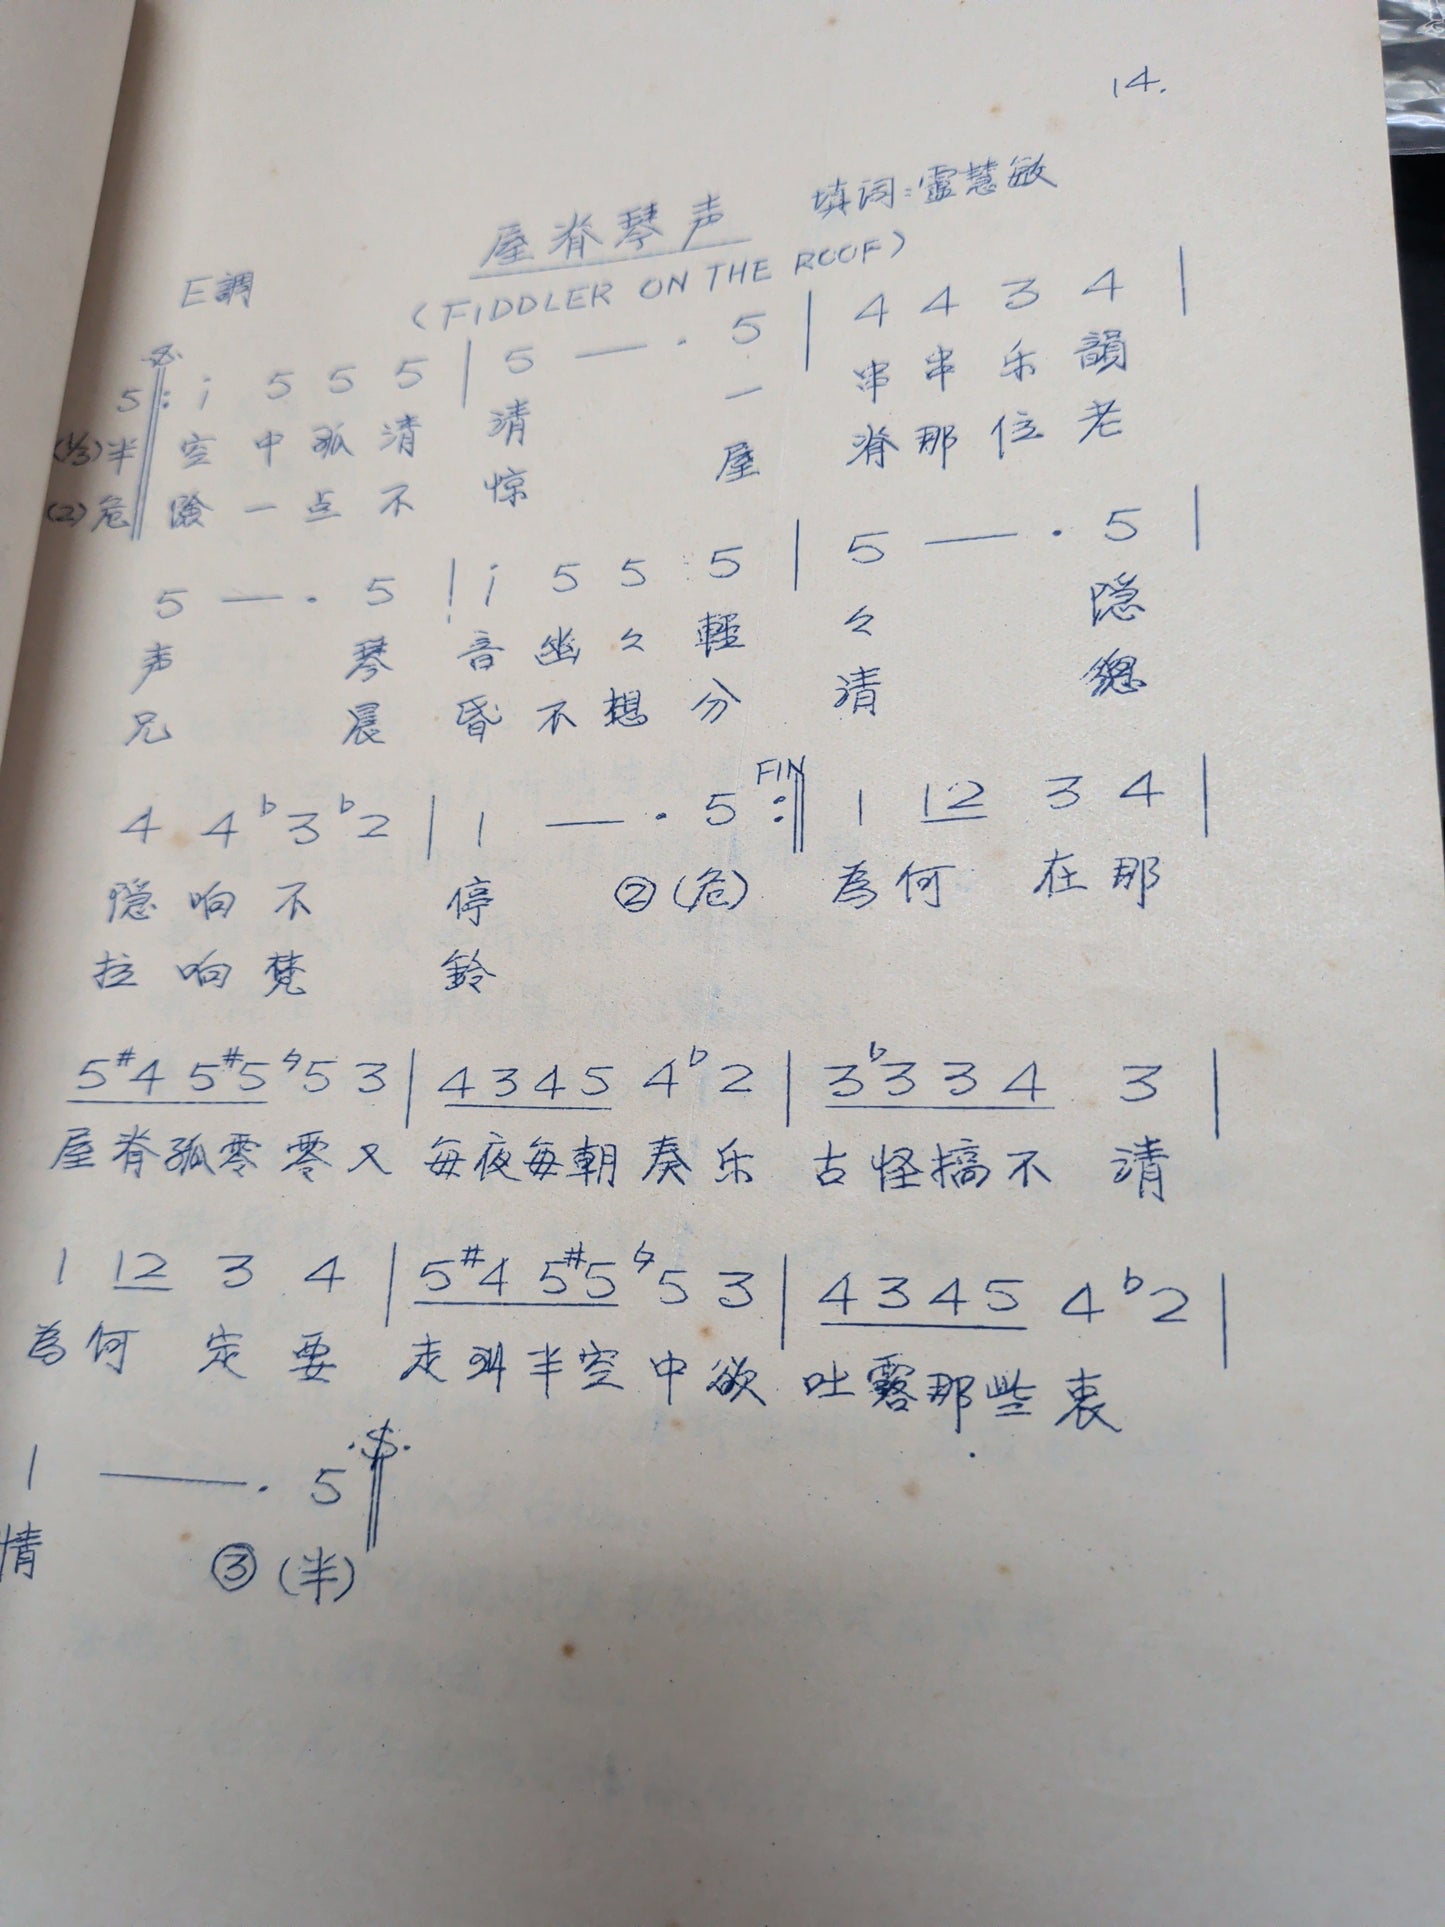 14.
屋脊琴声 填词:靈慧敏
E調 (FIDDLER ON THE ROOF)
5 𝄋‖: i 5 5 5 | 5 —— · 5 | 4 4 3 4 |
(1/3)半 空 中 孤 清 清 一 串 串 乐 韻
(2)危 險 一 点 不 惊 屋 脊 那 位 老
5 — · 5 | i 5 5 5 | 5 —— · 5 |
声 琴 音 幽 々 輕 々 隐
兄 晨 昏 不 想 分 清 總
4 4 ♭3 ♭2 | 1 —— · 5 FIN :‖ 1 12 3 4 |
隐 响 不 停 ②(危) 為 何 在 那
拉 响 梵 鈴
5 #4 5 #5 ♮5 3 | 4 3 4 5 4 ♭2 | 3 ♭3 3 4 3 |
屋 脊 孤 零 零 又 每 夜 每 朝 奏 乐 古 怪 搞 不 清
1 12 3 4 | 5 #4 5 #5 ♮5 3 | 4 3 4 5 4 ♭2 |
為 何 定 要 走 到 半 空 中 欲 吐 露 那 些 衷
1 —— · 5 𝄋‖
情 ③(半)